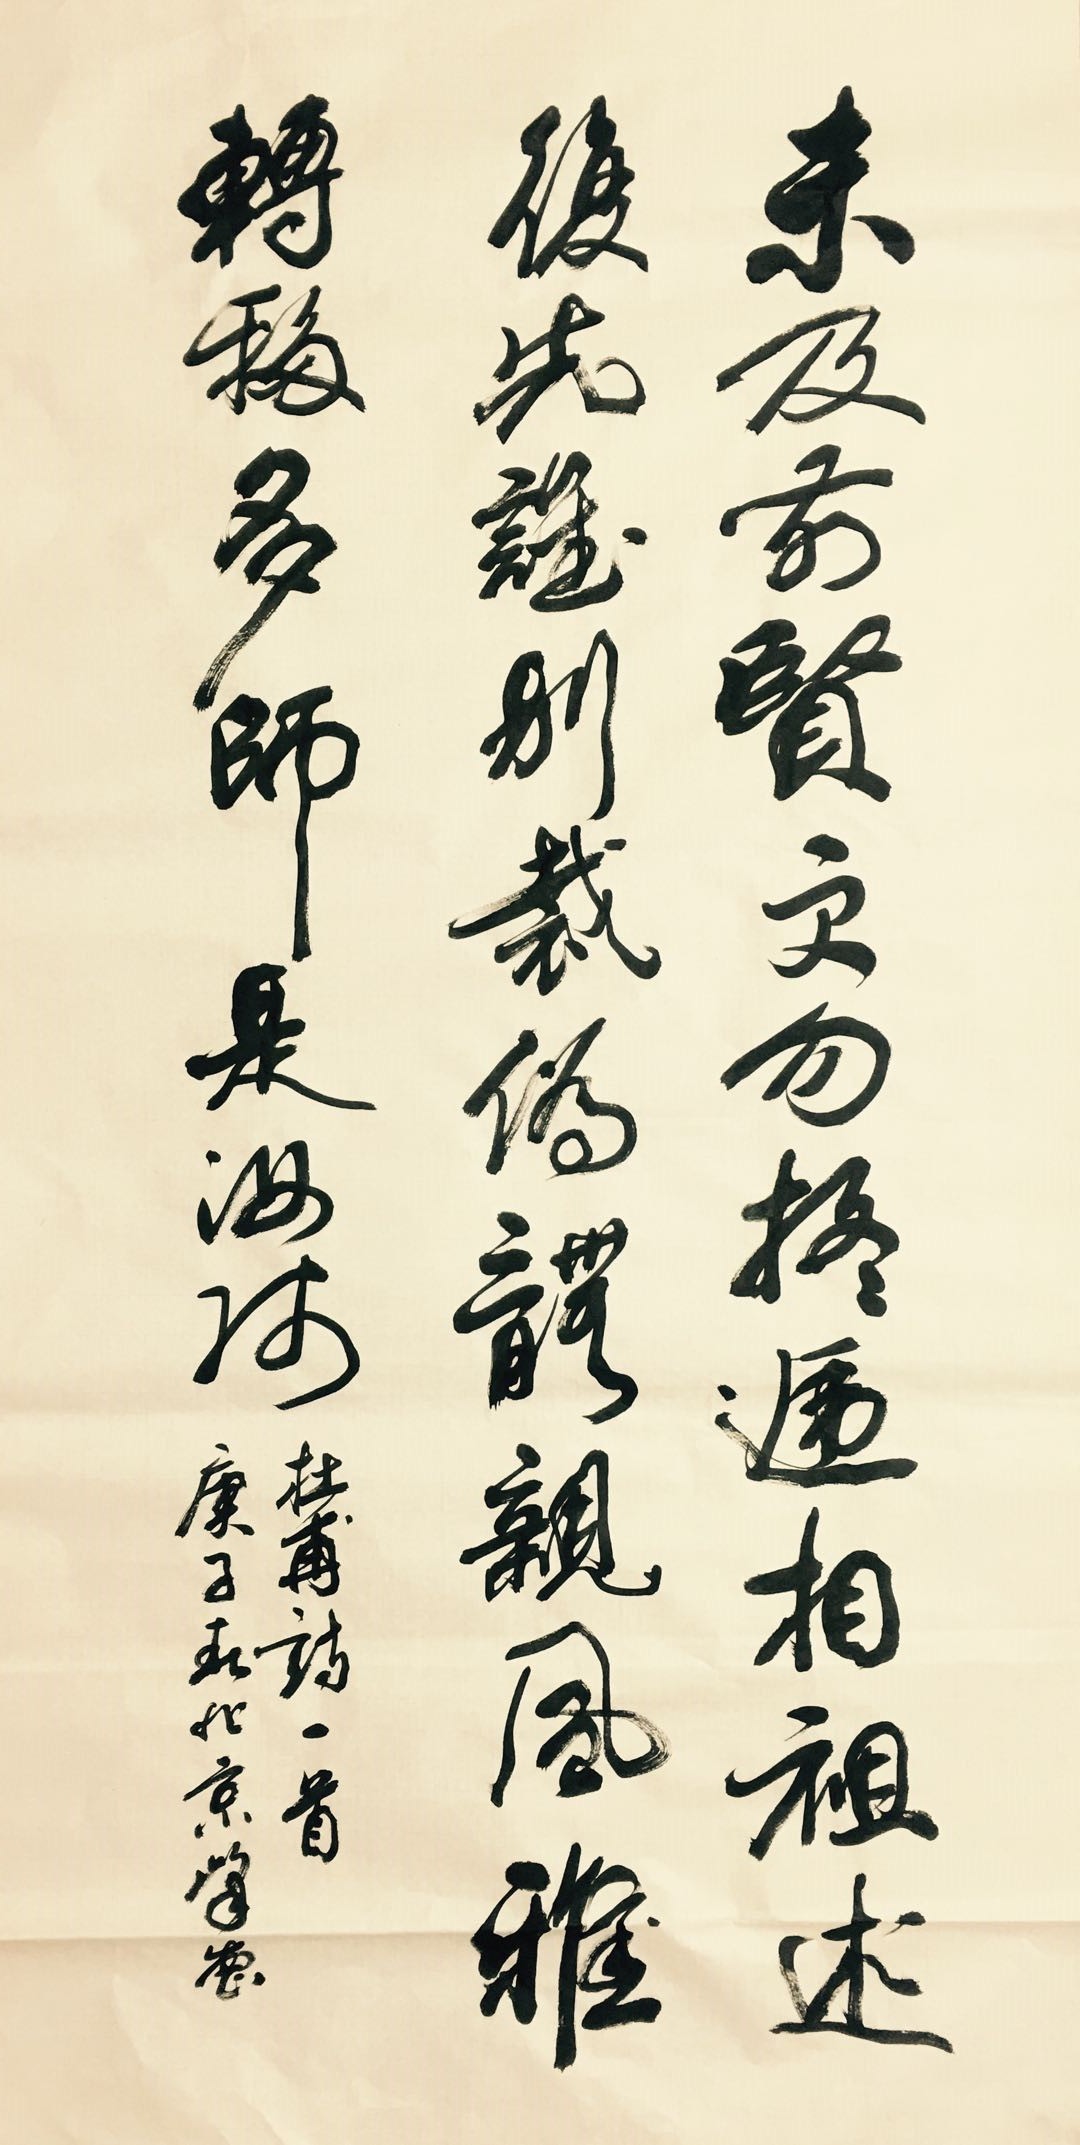 未及前賢更勿疑遞相祖述
復先誰別裁偽體親風雅
轉移多師是汝師
杜甫詩一首
庚子秋北京